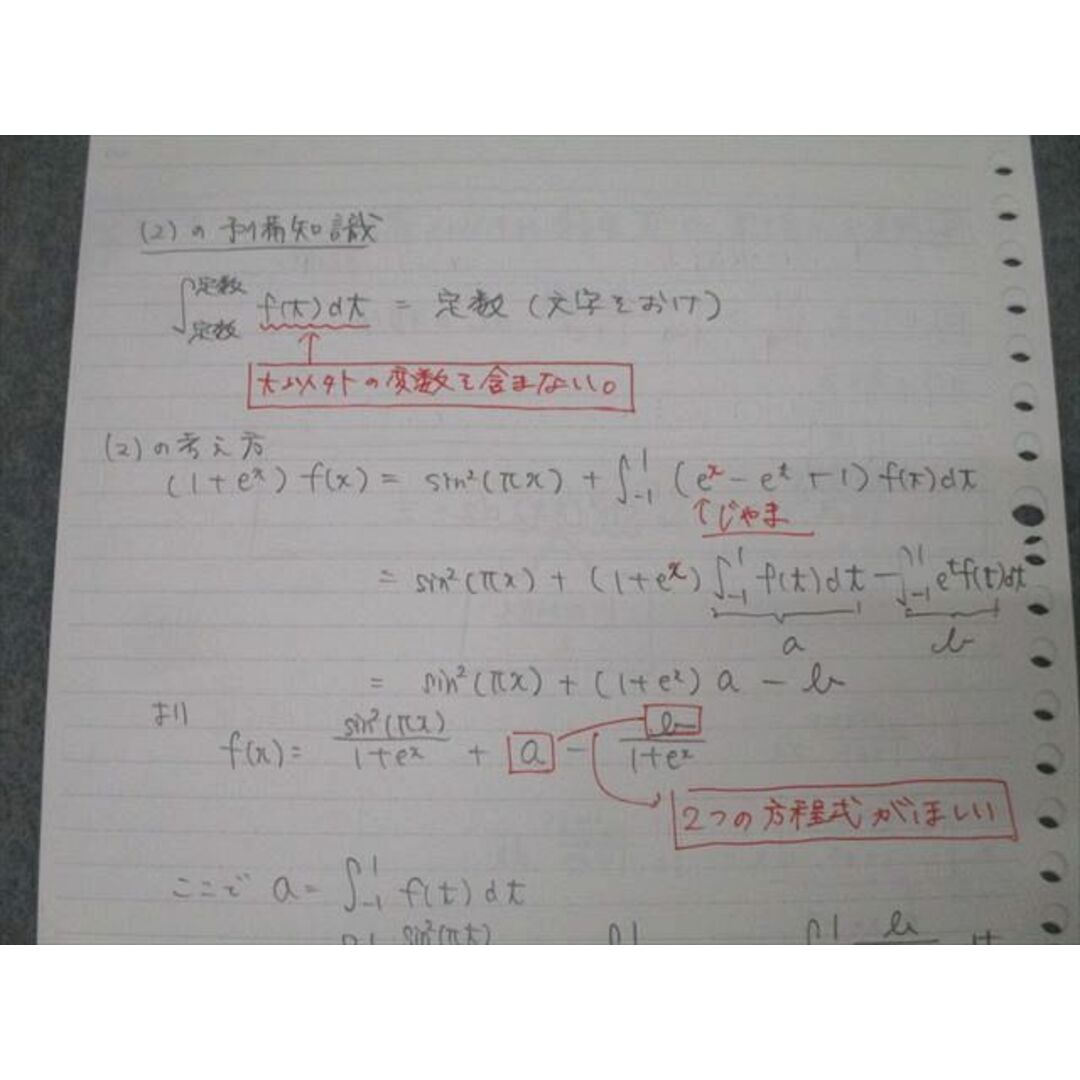 (2)の予備知識
∫定数定数 f(t)dt = 定数(文字をおけ)
t以外の変数を含まない。
(2)の考え方
(1+eˣ)f(x) = sin²(πx) + ∫₋₁¹(eˣ-eᵗ+1)f(t)dt
↑じゃま
= sin²(πx) + (1+eˣ)∫₋₁¹f(t)dt - ∫₋₁¹eᵗf(t)dt
a b
= sin²(πx) + (1+eˣ)a - b
より
f(x) = sin²(πx)/(1+eˣ) + a - b/(1+eˣ)
2つの方程式がほしい
ここで a = ∫₋₁¹f(t)dt
sin²(πt) b